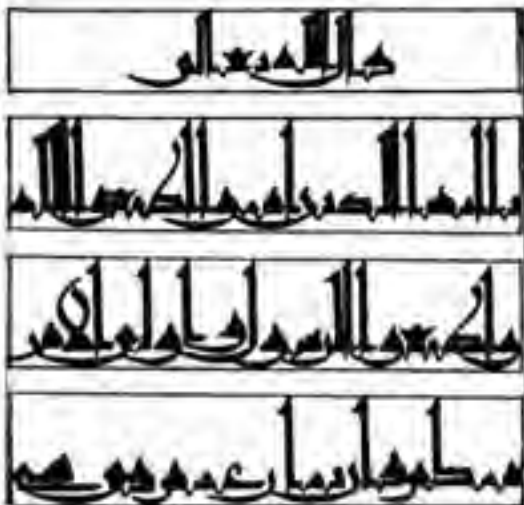 قال الله تعالى
يا ايها الذين امنوا اطيعوا الله
واطيعوا الرسول واولي الامر
منكم فان تنازعتم في شيء